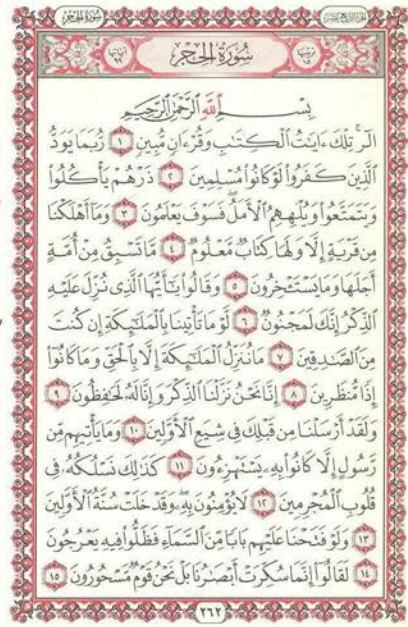 سُورَةُ الحِجْرِ
الجزء الرابع عشر
ترتيبها ١٥
سُورَةُ الْحِجْرِ
آياتها ٩٩
بِسْمِ ٱللَّهِ ٱلرَّحْمَٰنِ ٱلرَّحِيمِ
الٓر ۚ تِلْكَ ءَايَٰتُ ٱلْكِتَٰبِ وَقُرْءَانٍ مُّبِينٍ ١ رُّبَمَا يَوَدُّ
ٱلَّذِينَ كَفَرُوا۟ لَوْ كَانُوا۟ مُسْلِمِينَ ٢ ذَرْهُمْ يَأْكُلُوا۟
وَيَتَمَتَّعُوا۟ وَيُلْهِهِمُ ٱلْأَمَلُ ۖ فَسَوْفَ يَعْلَمُونَ ٣ وَمَآ أَهْلَكْنَا
مِن قَرْيَةٍ إِلَّا وَلَهَا كِتَابٌ مَّعْلُومٌ ٤ مَّا تَسْبِقُ مِنْ أُمَّةٍ
أَجَلَهَا وَمَا يَسْتَـْٔخِرُونَ ٥ وَقَالُوا۟ يَٰٓأَيُّهَا ٱلَّذِى نُزِّلَ عَلَيْهِ
ٱلذِّكْرُ إِنَّكَ لَمَجْنُونٌ ٦ لَّوْ مَا تَأْتِينَا بِٱلْمَلَٰٓئِكَةِ إِن كُنتَ
مِنَ ٱلصَّٰدِقِينَ ٧ مَا نُنَزِّلُ ٱلْمَلَٰٓئِكَةَ إِلَّا بِٱلْحَقِّ وَمَا كَانُوٓا۟
إِذًا مُّنظَرِينَ ٨ إِنَّا نَحْنُ نَزَّلْنَا ٱلذِّكْرَ وَإِنَّا لَهُۥ لَحَٰفِظُونَ ٩
وَلَقَدْ أَرْسَلْنَا مِن قَبْلِكَ فِى شِيَعِ ٱلْأَوَّلِينَ ١٠ وَمَا يَأْتِيهِم مِّن
رَّسُولٍ إِلَّا كَانُوا۟ بِهِۦ يَسْتَهْزِءُونَ ١١ كَذَٰلِكَ نَسْلُكُهُۥ فِى
قُلُوبِ ٱلْمُجْرِمِينَ ١٢ لَا يُؤْمِنُونَ بِهِۦ ۖ وَقَدْ خَلَتْ سُنَّةُ ٱلْأَوَّلِينَ
١٣ وَلَوْ فَتَحْنَا عَلَيْهِم بَابًا مِّنَ ٱلسَّمَآءِ فَظَلُّوا۟ فِيهِ يَعْرُجُونَ
١٤ لَقَالُوٓا۟ إِنَّمَا سُكِّرَتْ أَبْصَٰرُنَا بَلْ نَحْنُ قَوْمٌ مَّسْحُورُونَ ١٥
٢٦٢